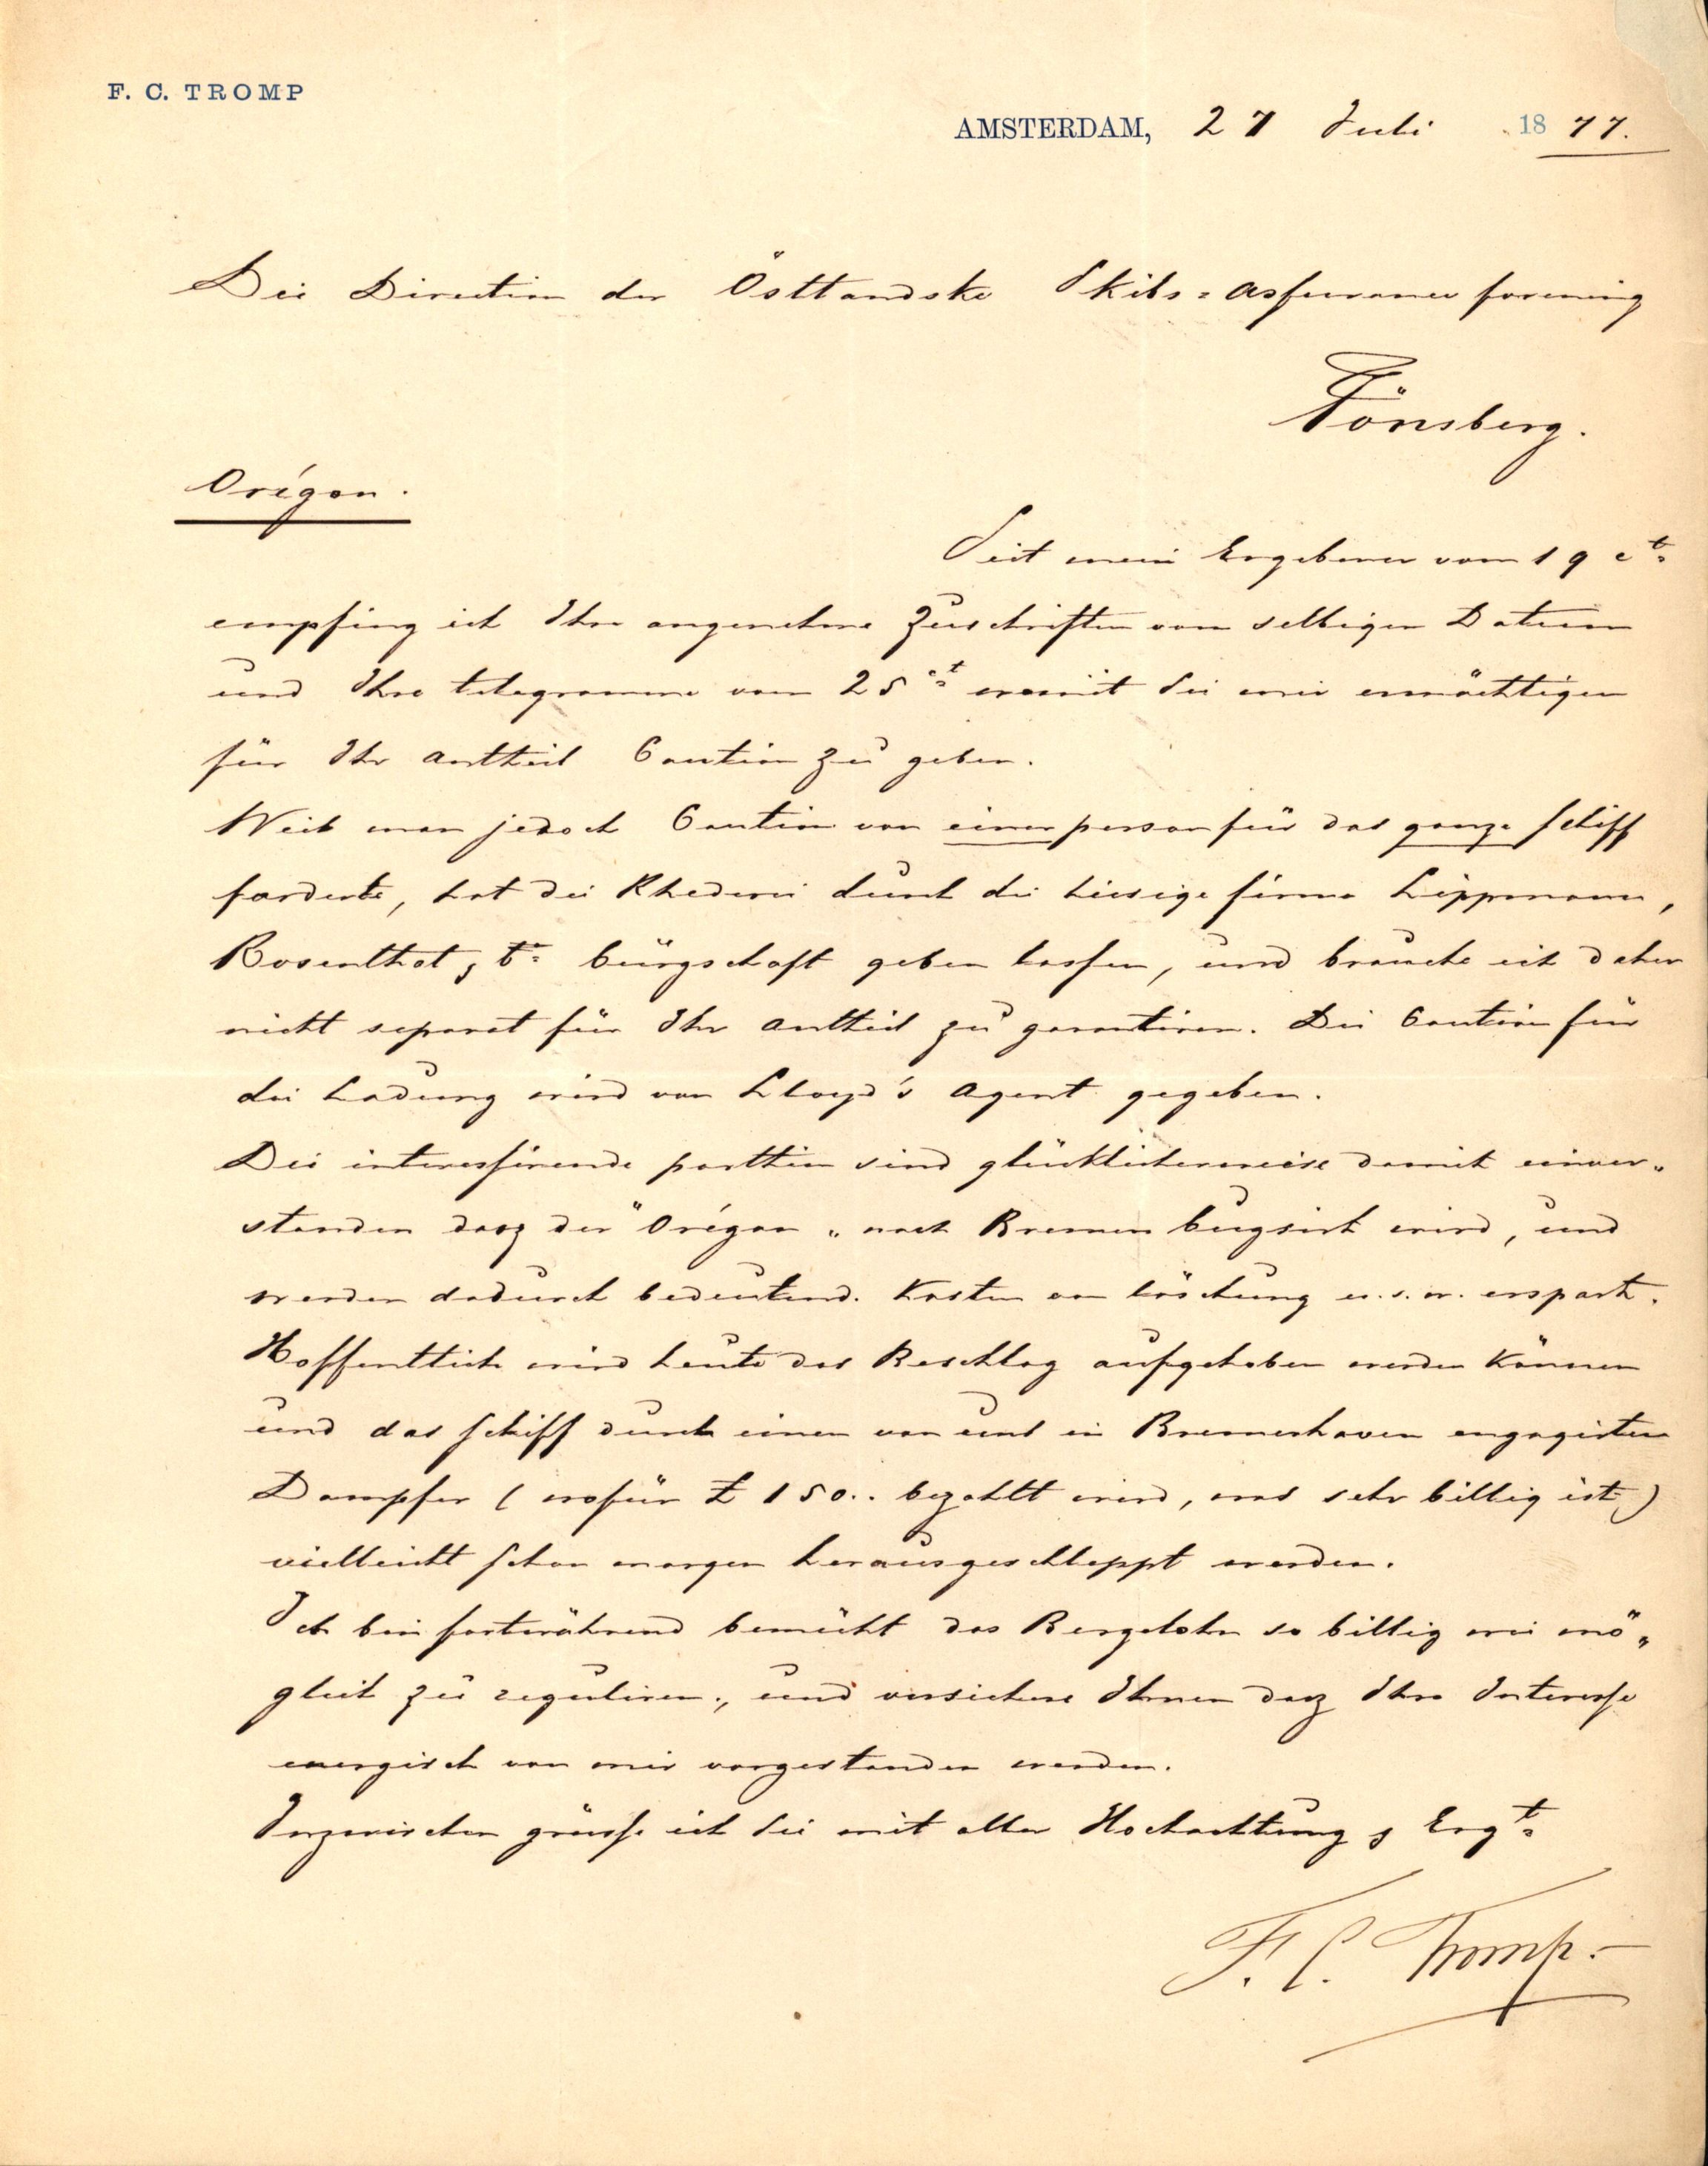 F. C. TROMP
AMSTERDAM, 27 Juli 1877.
Die Direction der Östlandske Skibs=assurance forening
Tönsberg.
Orégon.
Seit mein Ergebenes vom 19 ct
empfing ich Ihre angenehme Zuschriften vom selbigen Datum
und Ihre telegramme vom 25 ct womit Sie mir ermächtigen
für Ihr Antheil Caution zu geben.
Weil man jedoch Caution von einer person für das ganze schiff
forderte, hat die Rhederei durch die hiesige firma Lippmann,
Rosenthal & Co bürgschaft geben lassen, und brauche ich daher
nicht separat für Ihr Antheil zu garantiren. Die Caution für
die Ladung wird von Lloyd's Agent gegeben.
Die interessirende parthien sind glücklicherweise damit einver„
standen dasz der "Orégon„ nach Bremen bugsirt wird, und
werden dadurch bedeutend. Kosten von löschung u.s.w. erspart.
Hoffentlich wird heute das Beschlag aufgehoben werden können
und das schiff durch einen von uns in Bremerhaven engagirten
Dampfer (wofür £ 150.. bezahlt wird, was sehr billig ist)
vielleicht schon morgen herausgeschleppt werden.
Ich bin fortwährend bemüht das Bergelohn so billig wie mö„
glich zu reguliren., und versichere Ihnen dasz Ihre Interesse
energisch von mir vorgestanden werden.
Inzwischen grüsse ich Sie mit aller Hochachtung & Ergt
F. C. Tromp.